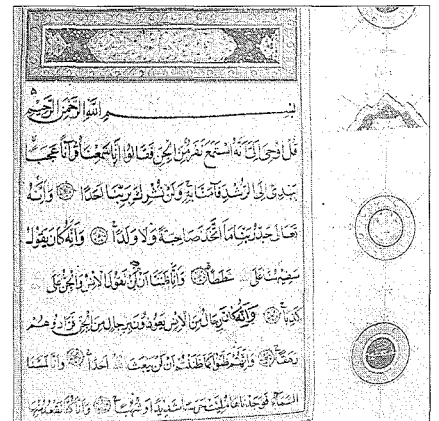 بسم الله الرحمن الرحيم
قل اوحي الي انه استمع نفر من الجن فقالوا انا سمعنا قرآنا عجبا
يهدي الى الرشد فآمنا به ولن نشرك بربنا احدا وانه
تعالى جد ربنا ما اتخذ صاحبة ولا ولدا وانه كان يقول
سفيهنا على شططا وانا ظننا ان لن تقول الانس والجن على
كذبا وانه كان رجال من الانس يعوذون برجال من الجن فزادوهم
رهقا وانهم ظنوا كما ظننتم ان لن يبعث احدا وانا لمسنا
السماء فوجدناها ملئت حرسا شديدا وشهبا وانا كنا نقعد منها